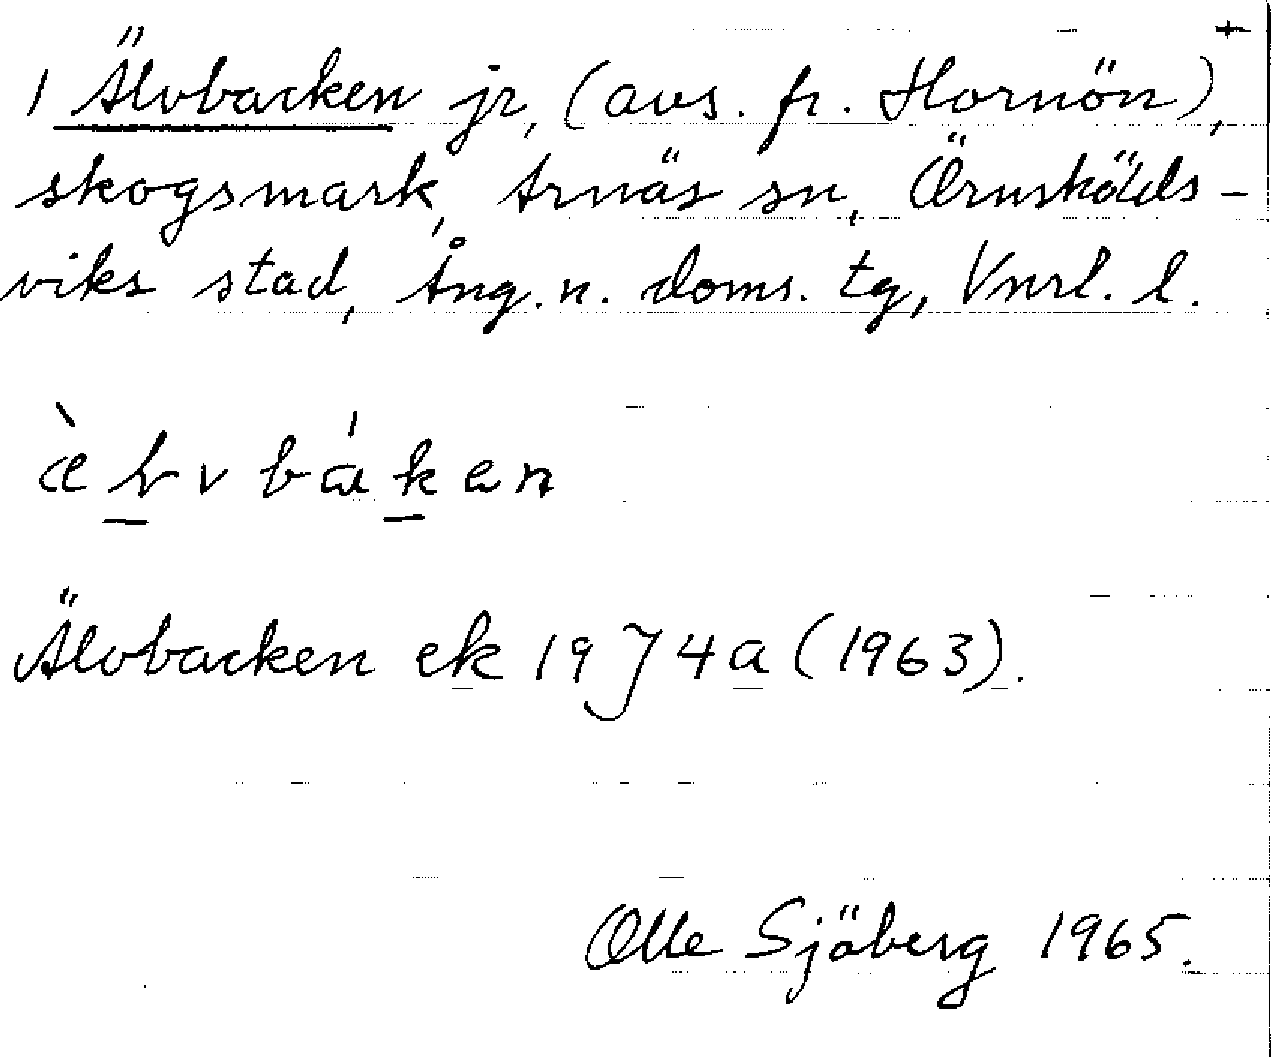 +
1 Älvbacken jr, (avs. fr. Hornön),
skogsmark, Arnäs sn, Örnskölds-
viks stad, Ång. n. doms. tg, Vnrl. l.
Älvbacken ek 19 J 4a (1963).
Olle Sjöberg 1965.